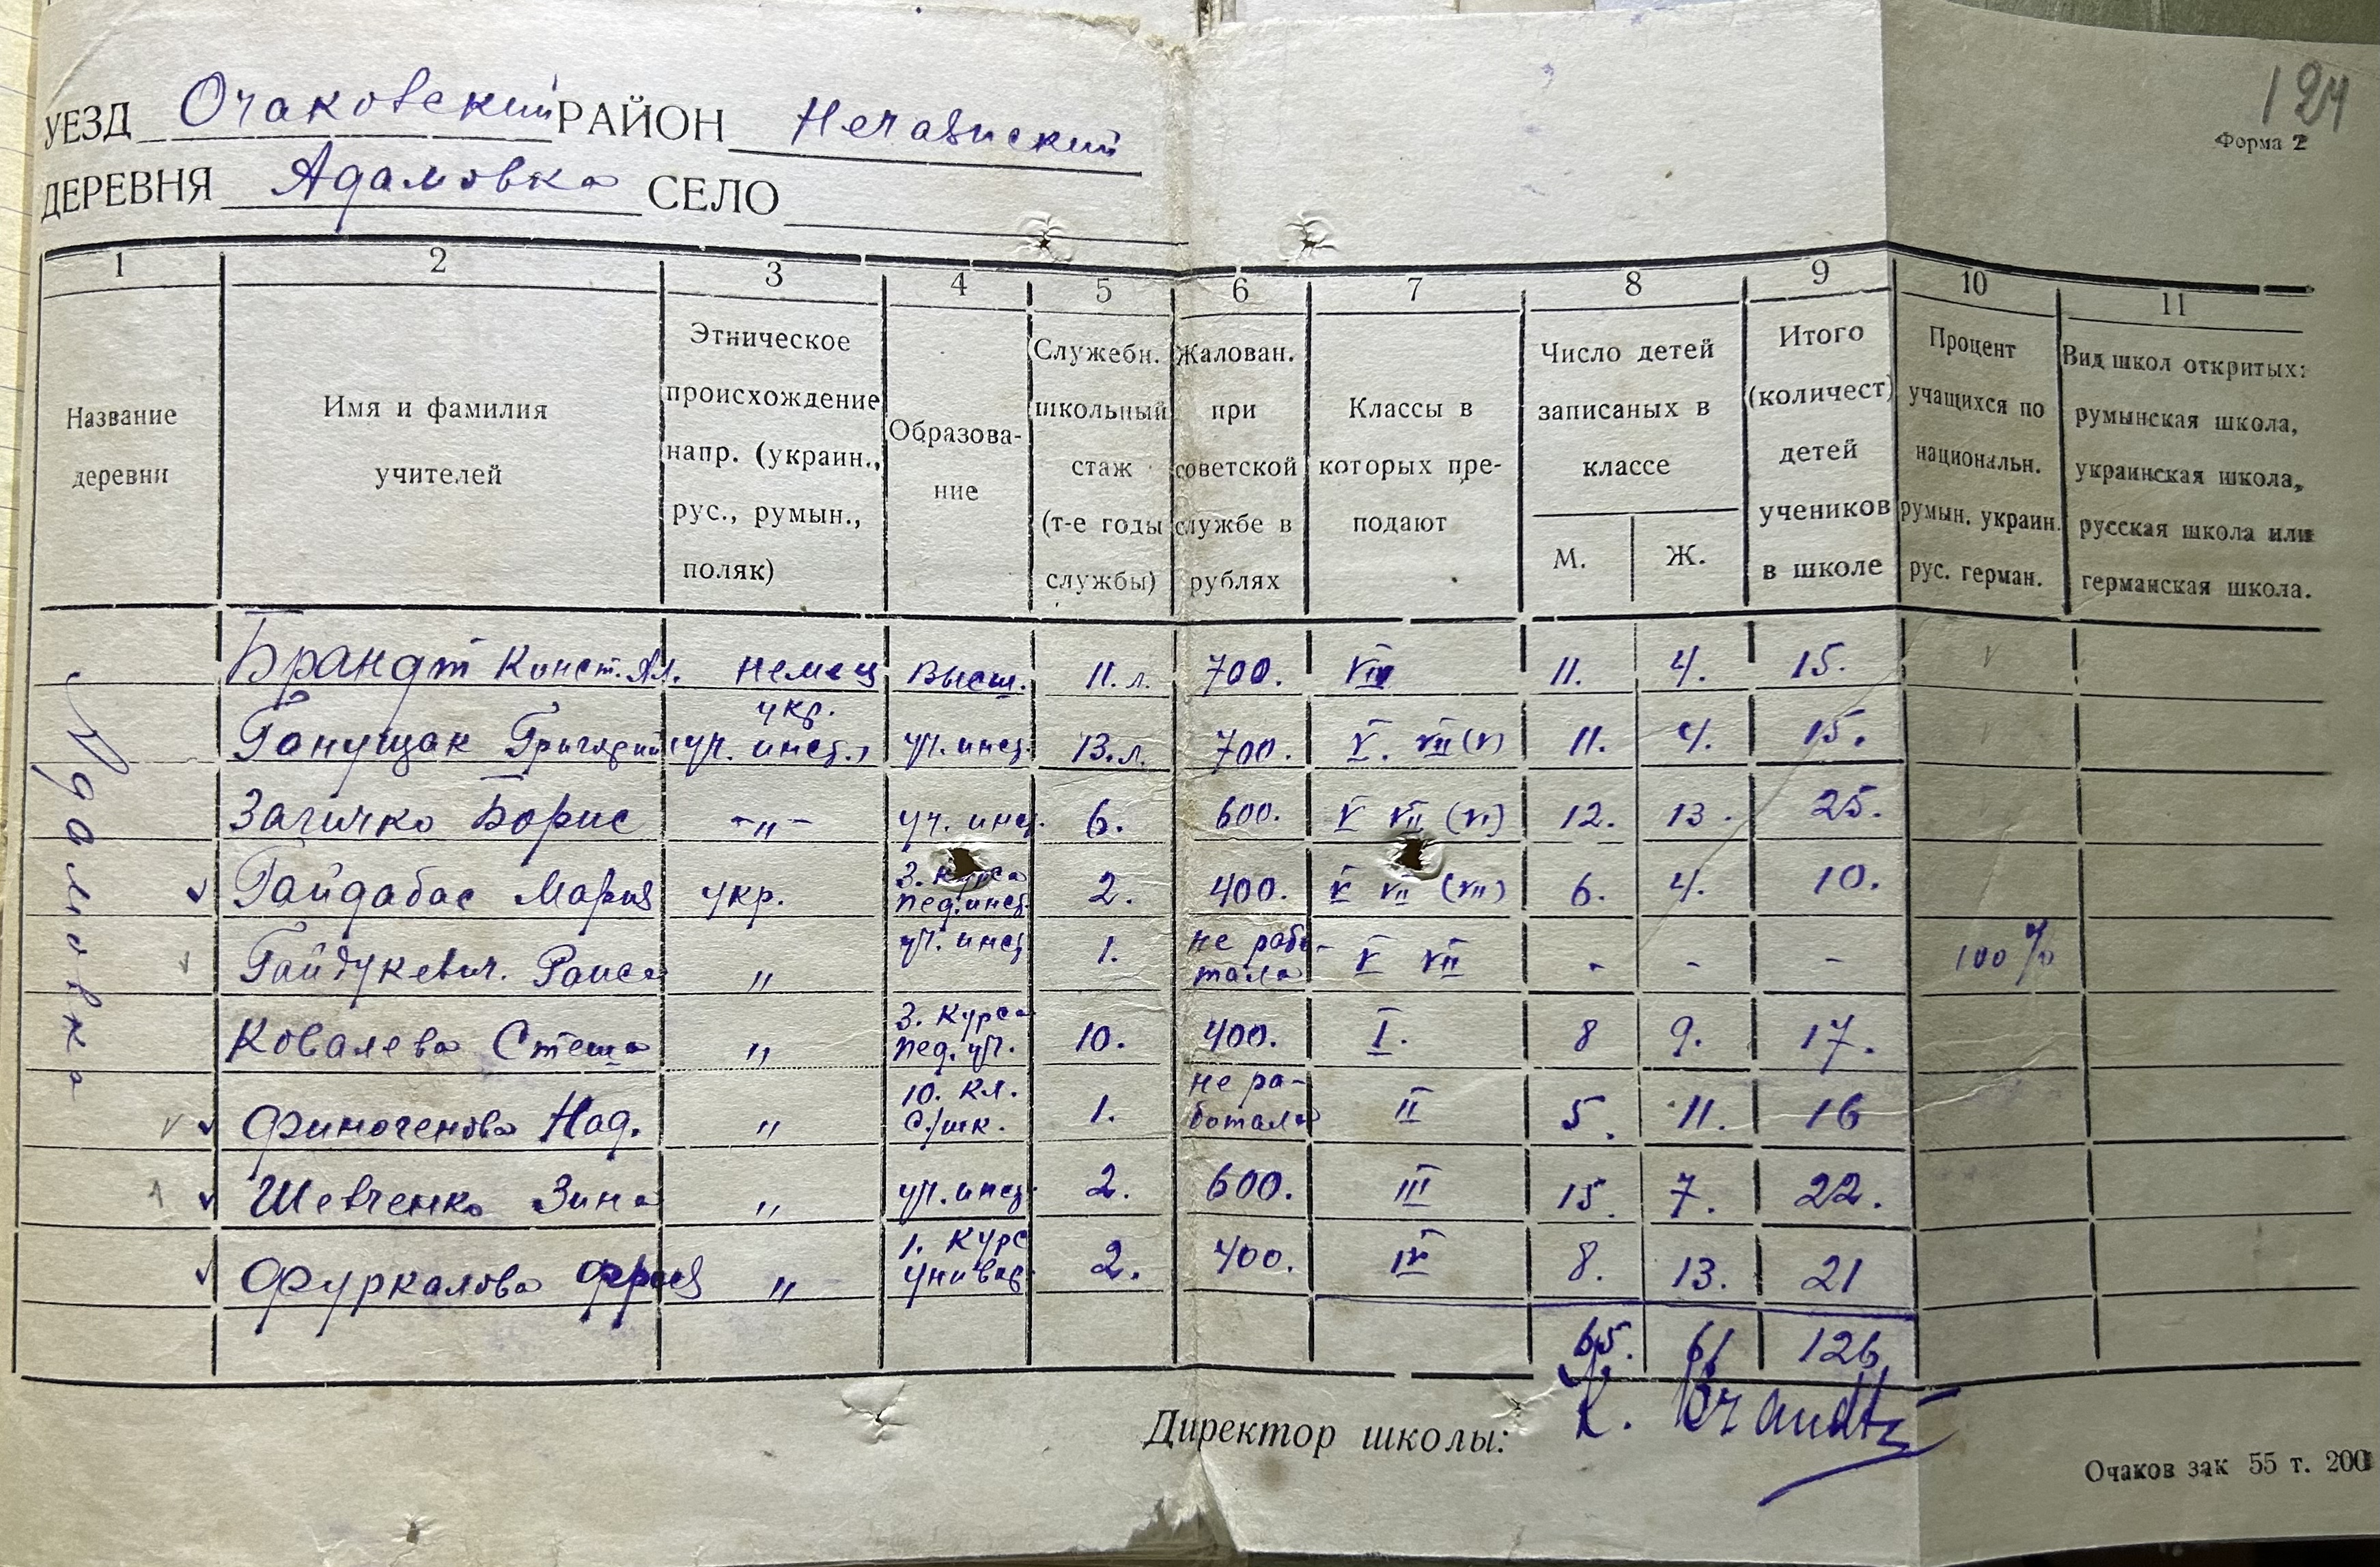 124
Форма 2
УЕЗД Очаковский РАЙОН Нечаянский
ДЕРЕВНЯ Адамовка СЕЛО
1 2 3 4 5 6 7 8 9 10 11
Название деревни
Имя и фамилия учителей
Этническое происхождение напр. (украин., рус., румын., поляк)
Образова-ние
Служебн. школьный стаж (т-е годы службы)
Жалован. при советской службе в рублях
Классы в которых пре-подают
Число детей записаных в классе
М. Ж.
Итого (количест) детей учеников в школе
Процент учащихся по национальн. румын. украин. рус. герман.
Вид школ откритых: румынская школа, украинская школа, русская школа или германская школа.
Адамовка
Брандт Конст. Ал. немец Высш. 11. л. 700. VII 11. 4. 15.
укр.
Ганущак Григорий (уч. инст.) уч. инст. 13. л. 700. V. VII (V) 11. 4. 15.
Загичко Борис -"- уч. инст. 6. 600. V VII (VI) 12. 13. 25.
Гайдабас Мария укр. 3. курса пед. инст. 2. 400. V VII (VII) 6. 4. 10.
Гайдукевич. Раиса " уч. инст 1. не рабо-тала V VII - - - 100%
Ковалева Стеша " 3. Курса пед. уч. 10. 400. I. 8 9. 17.
Финогенова Над. " 10. кл. с/шк. 1. не ра-ботала II 5. 11. 16
Шевченко Зина " уч. инст. 2. 600. III 15. 7. 22.
Фуркалова " 1. Курс универ. 2. 400. IV 8. 13. 21
65. 61 126
Директор школы: K. Brandt
Очаков зак 55 т. 200